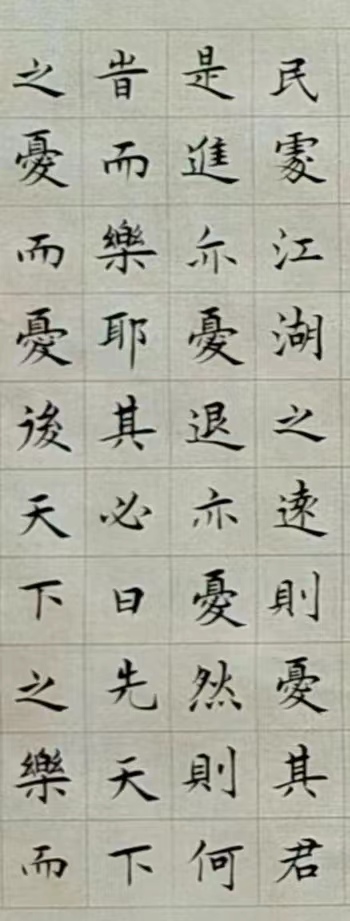 民處江湖之遠則憂其君
是進亦憂退亦憂然則何
旹而樂耶其必曰先天下
之憂而憂後天下之樂而